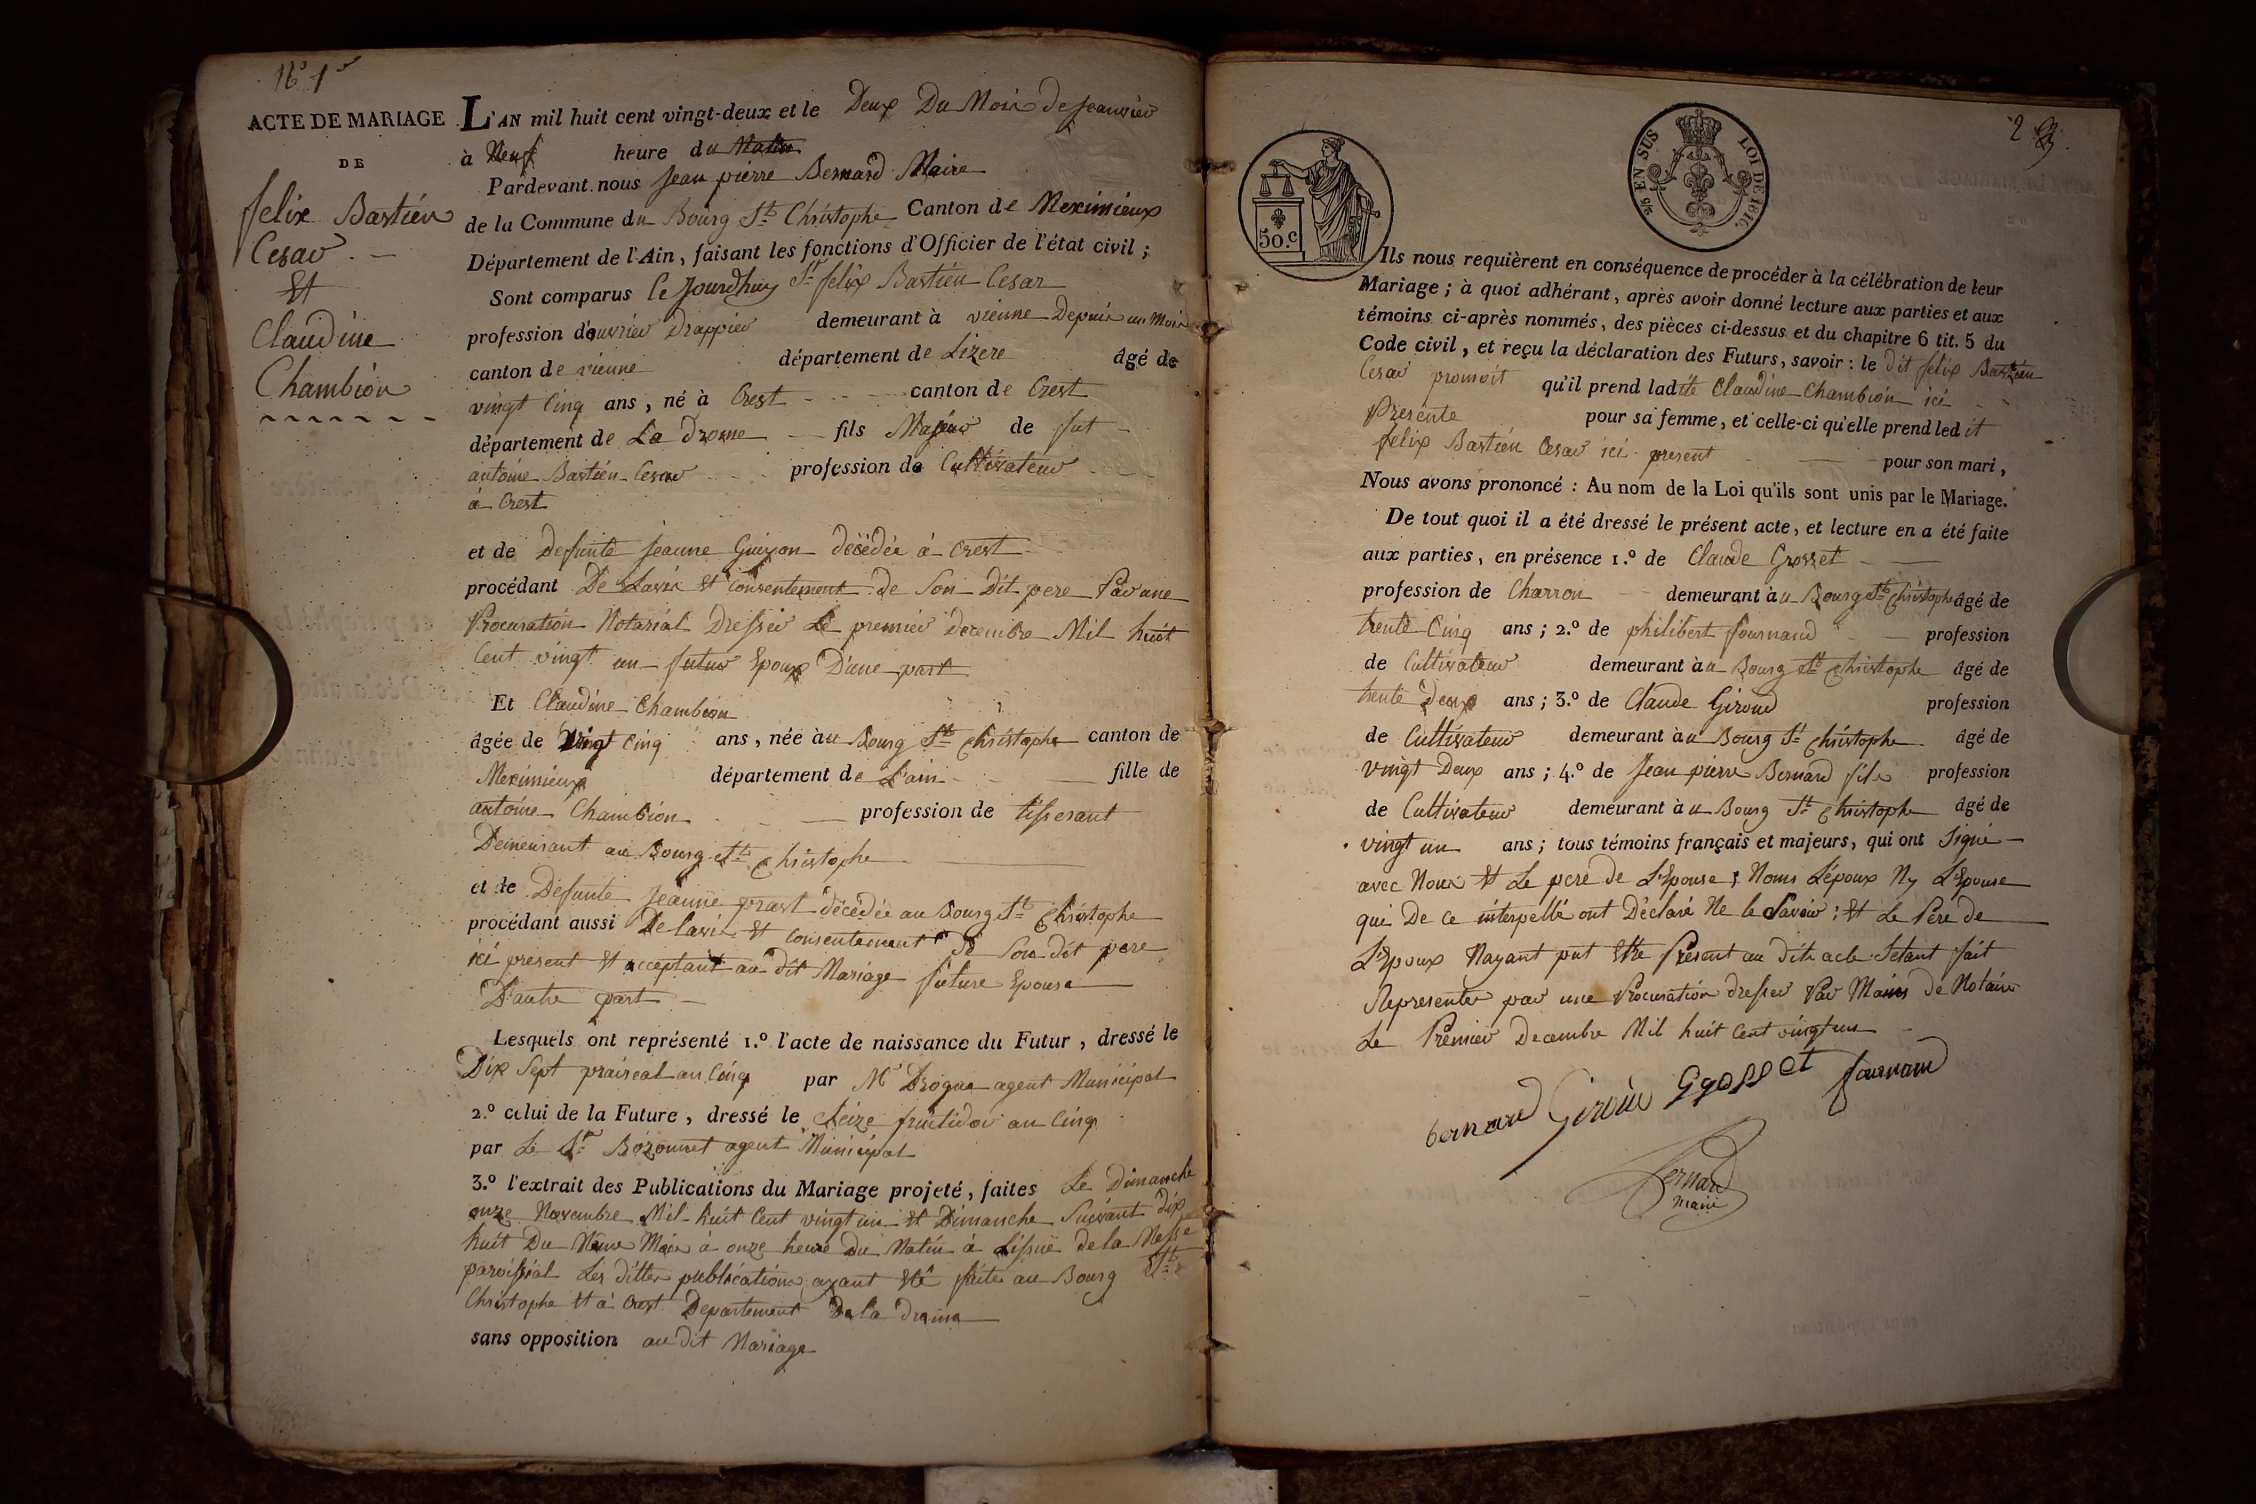 ACTE DE MARIAGE
DE
felix Bastien
Cesar
Et
Claudine
Chambion
L'AN mil huit cent vingt-deux et le Deux Du Mois de Jeanvier
à Neuf heure du Matin
Pardevant nous Jean pierre Bernard Maire
de la Commune du Bourg St Christophe Canton de Meximieux
Département de l'Ain, faisant les fonctions d'Officier de l'état civil ;
Sont comparus le Jourdhuy Sr felix Bastien Cesar
profession d'ouvrier Drappier demeurant à vienne Depuis un Mois
canton de vienne département de Lizere âgé de
vingt Cinq ans, né à Crest canton de Crest
département de La Drome fils Majeur de fut
antoine Bastien Cesar profession de Cultivateur
à Crest
et de Defunte Jeanne Guizon décédée à Crest
procédant De Lavis Et Consentement de Son Dit pere Par une
Procuration Notarial Dressée Le premier Decembre Mil huit
Cent vingt un futur Epoux D'une part
Et Claudine Chambion
âgée de Vingt Cinq ans, née au Bourg St Christophe canton de
Meximieux département de L'ain fille de
antoine Chambion profession de tisserant
Demeurant au Bourg St Christophe
et de Defunte Jeanne prast décédée au Bourg St Christophe
procédant aussi De lavis Et Consentement De Son dit pere
ici present Et acceptant au dit Mariage future Epouse
D'autre part
Lesquels ont représenté 1.º l'acte de naissance du Futur, dressé le
Dix Sept praireal an Cinq par Mr Drogue agent Municipal
2.º celui de la Future, dressé le Seize fruitidor an Cinq
par Le Sr Bozonnet agent Municipal
3.º l'extrait des Publications du Mariage projeté, faites Le Dimanche
onze Novembre Mil huit Cent vingt un Et Dimanche Suivant dix
huit Du Même Mois à onze heure Du Matin à Lissue de la Messe
paroissial Les dittes publications ayant Eté faites au Bourg St
Christophe Et à Crest Departement De La Drome
sans opposition au dit Mariage
2
2/5 EN SUS
LOI DE 1816.
50.c
Ils nous requièrent en conséquence de procéder à la célébration de leur
Mariage ; à quoi adhérant, après avoir donné lecture aux parties et aux
témoins ci-après nommés, des pièces ci-dessus et du chapitre 6 tit. 5 du
Code civil, et reçu la déclaration des Futurs, savoir : le dit felix Bastien
Cesar promoit qu'il prend ladite Claudine Chambion ici
Presente pour sa femme, et celle-ci qu'elle prend ledit
felix Bastien Cesar ici present pour son mari,
Nous avons prononcé : Au nom de la Loi qu'ils sont unis par le Mariage.
De tout quoi il a été dressé le présent acte, et lecture en a été faite
aux parties, en présence 1.º de Claude Grosset
profession de Charron demeurant au Bourg St Christophe âgé de
trente Cinq ans ; 2.º de philibert fournand profession
de Cultivateur demeurant au Bourg St Christophe âgé de
trente Deux ans ; 3.º de Claude Giroud profession
de Cultivateur demeurant au Bourg St Christophe âgé de
vingt Deux ans ; 4.º de Jean pierre Bernard fils profession
de Cultivateur demeurant au Bourg St Christophe âgé de
vingt un ans ; tous témoins français et majeurs, qui ont Signé
avec Nous Et Le pere de L'Epouse ; Noms Lépoux Ny L'Epouse
qui De Ce interpellé ont Déclaré Ne le Savoir ; Et Le Pere de
L'Epoux Nayant put Etre Présent au dit acte Setant fait
Representer par une Procuration dressée Par Mains de Notaire
Le Premier Decembre Mil huit Cent vingt un
bernard Giroud Grosset fournand
Bernard
maire